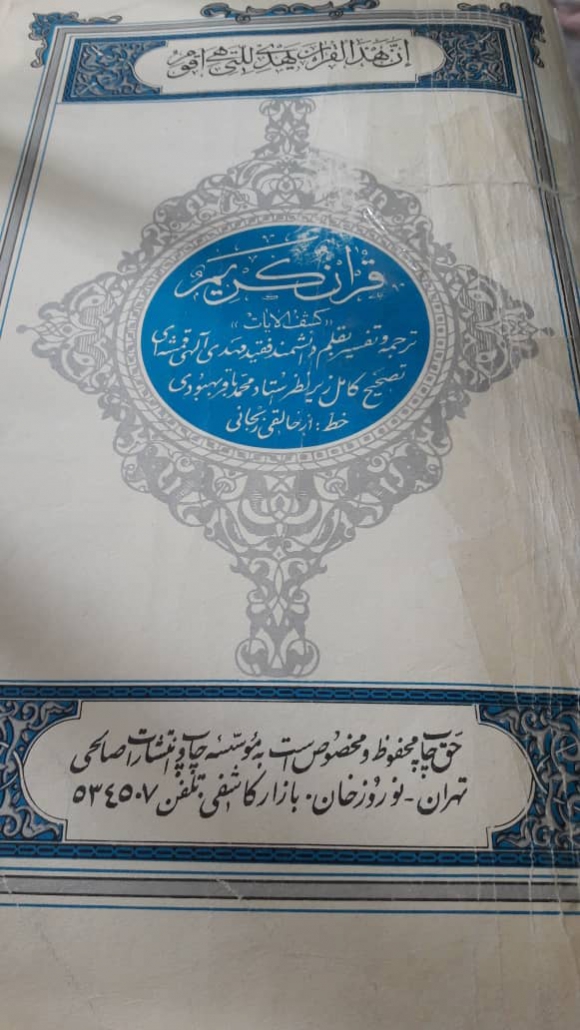 إن هذا القران يهدي للتي هي اقوم
قرآن کریم
«کشف الایات»
ترجمه و تفسیر بقلم دانشمند فقید مهدی آلهی قمشه‌ای
تصحیح کامل زیر نظر استاد محمد باقر بهبودی
خط: از خالقی زنجانی
حق چاپ محفوظ و مخصوص است به مؤسسه چاپ و انتشارات صالحی
تهران - نوروزخان . بازار کاشفی . تلفن ۵۳٤۵۰۷